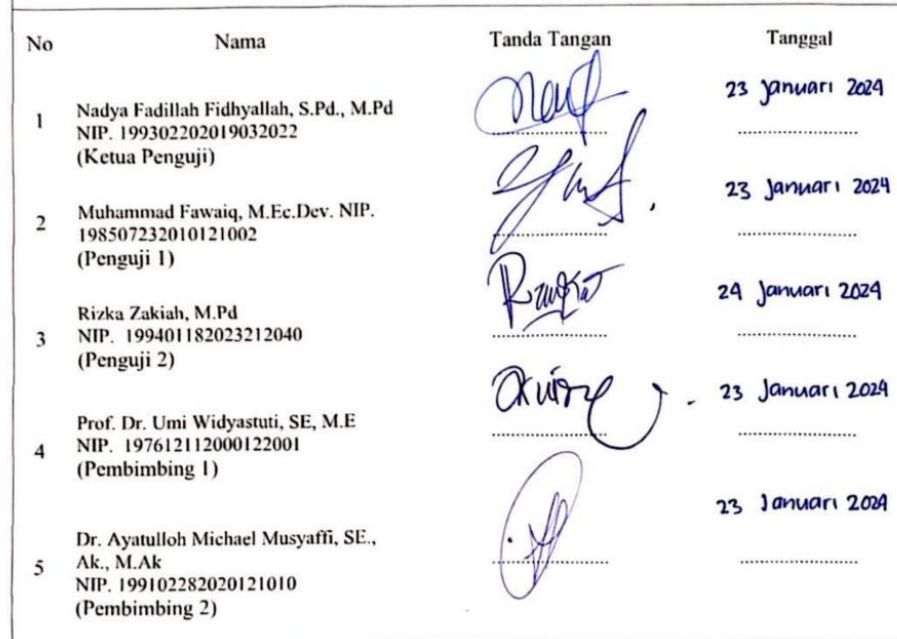 No Nama Tanda Tangan Tanggal
23 Januari 2024
1 Nadya Fadillah Fidhyallah, S.Pd., M.Pd
NIP. 199302202019032022
(Ketua Penguji)
23 Januari 2024
2 Muhammad Fawaiq, M.Ec.Dev. NIP.
198507232010121002
(Penguji 1)
24 Januari 2024
3 Rizka Zakiah, M.Pd
NIP. 199401182023212040
(Penguji 2)
23 Januari 2024
4 Prof. Dr. Umi Widyastuti, SE, M.E
NIP. 197612112000122001
(Pembimbing 1)
23 Januari 2024
5 Dr. Ayatulloh Michael Musyaffi, SE.,
Ak., M.Ak
NIP. 199102282020121010
(Pembimbing 2)